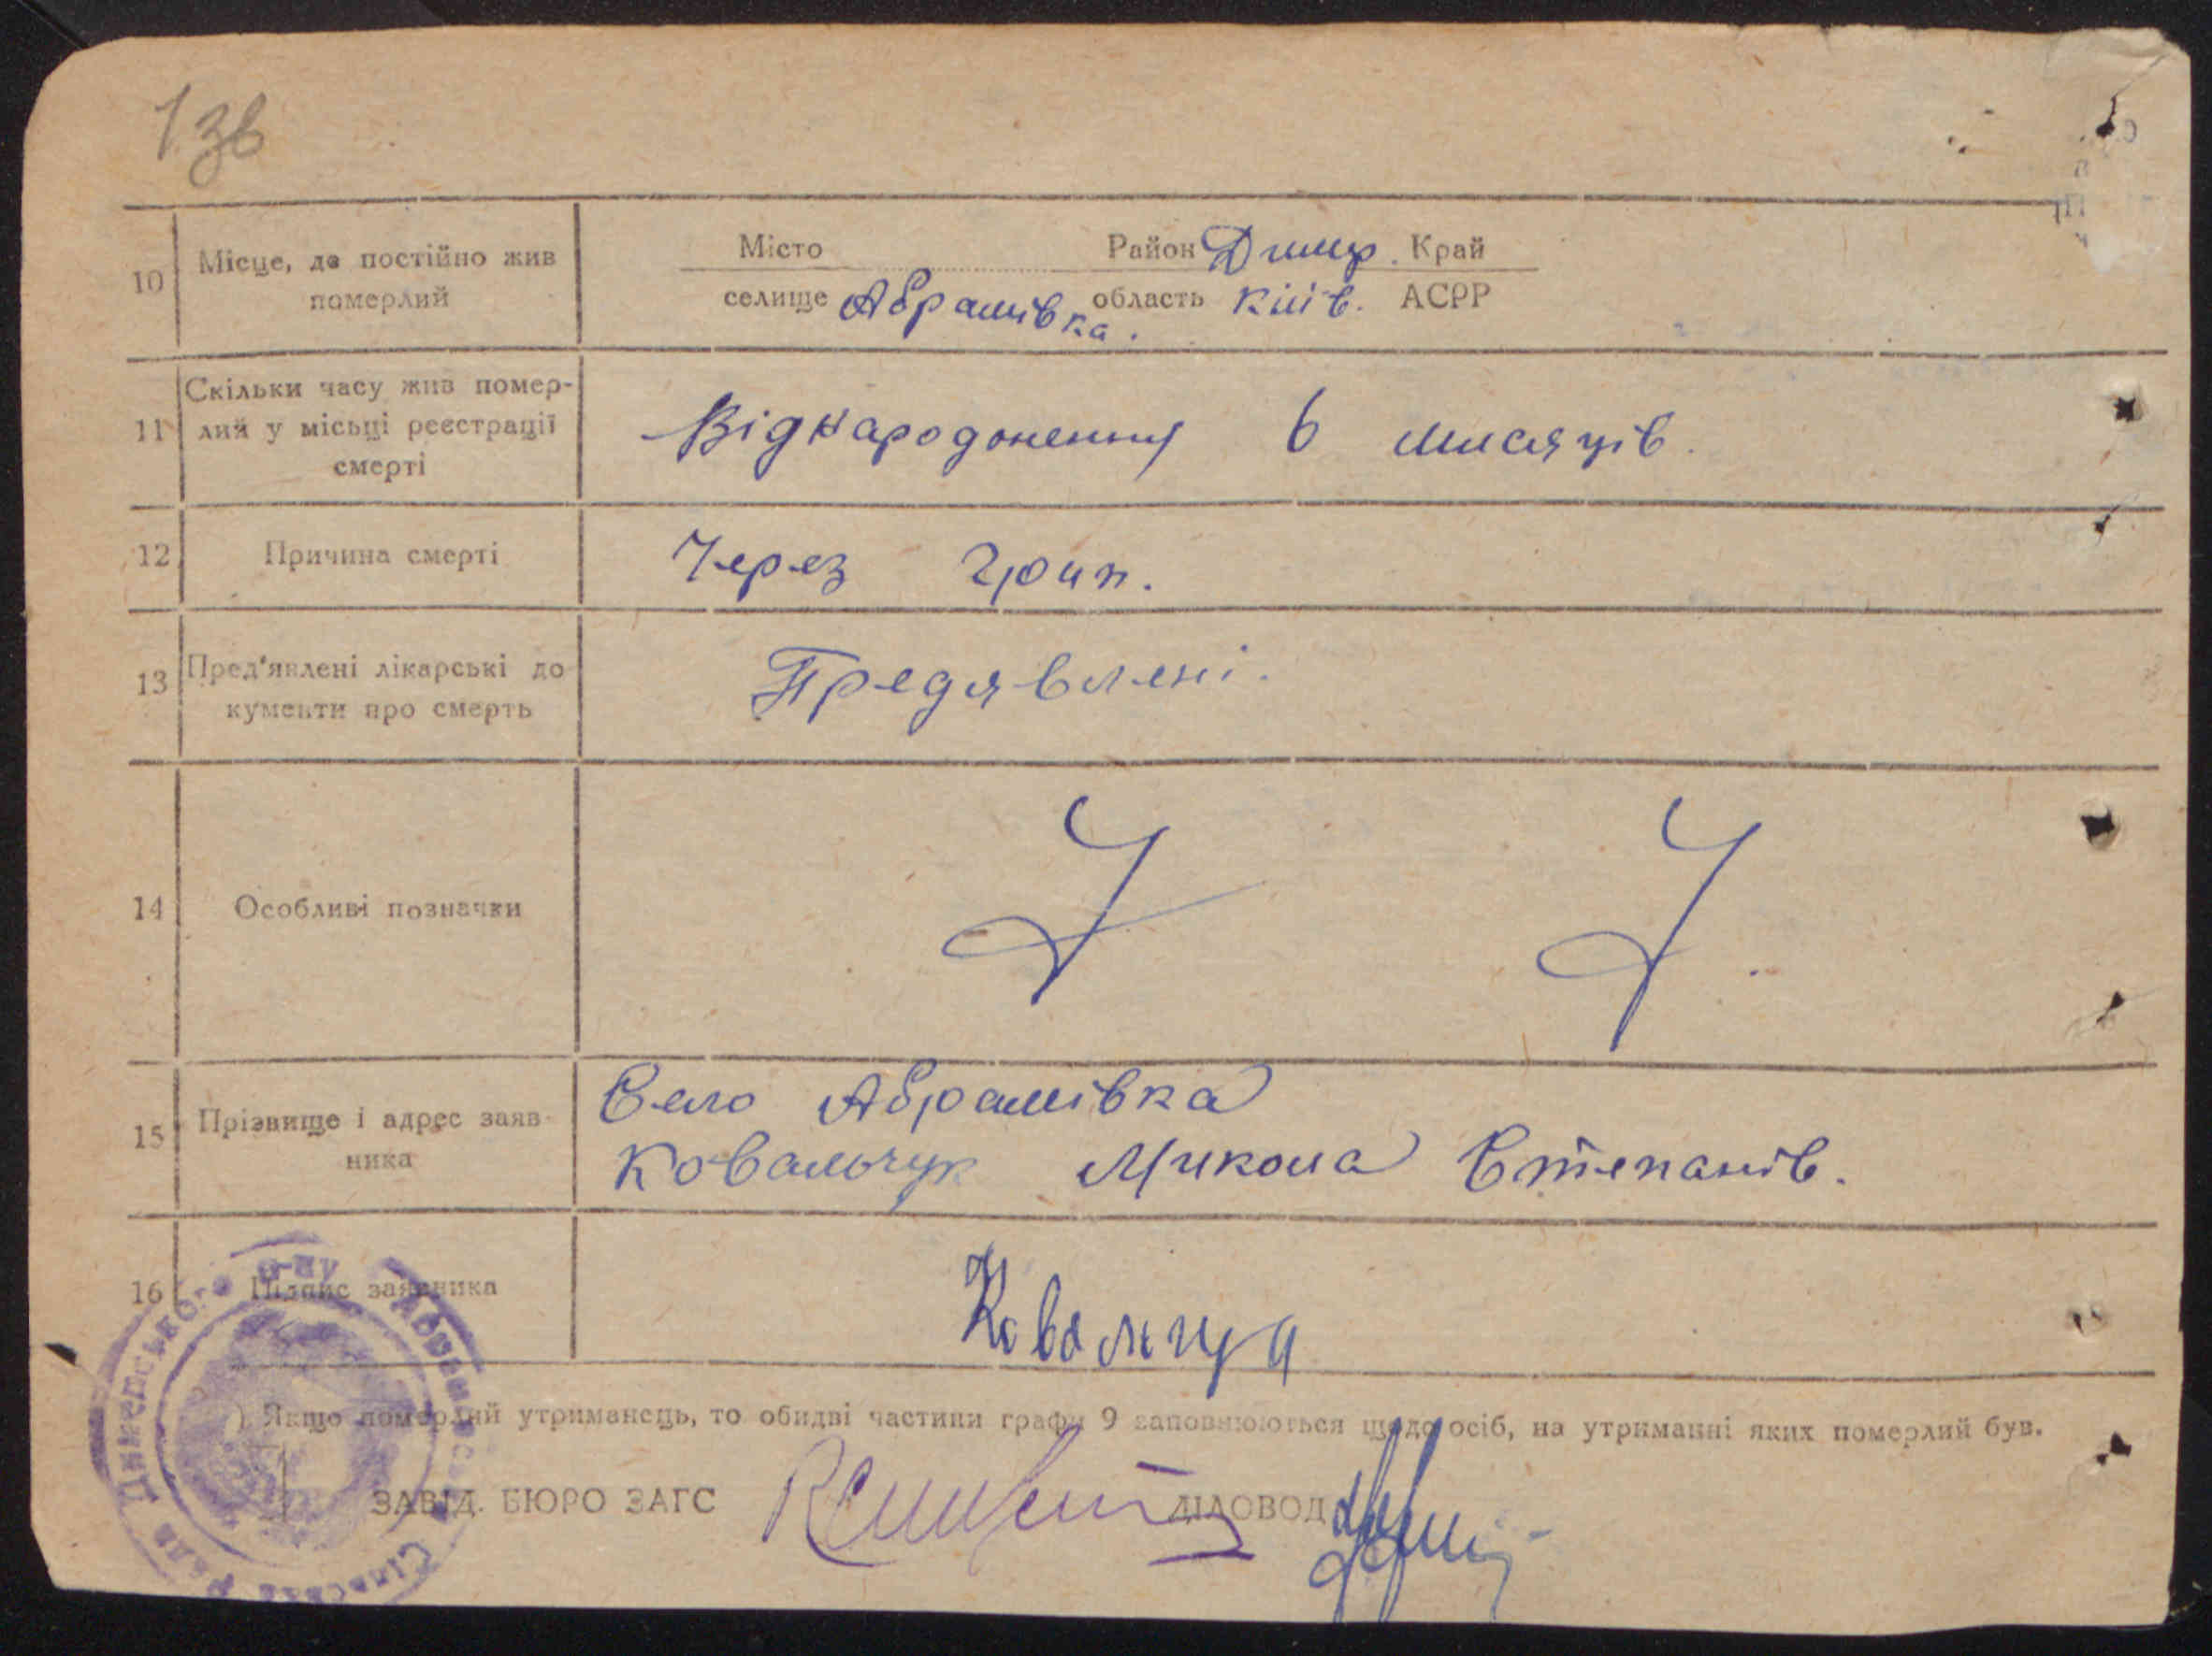 1зв
10 Місце, де постійно жив померлий
Місто Район Димер. Край
селище Абрамівка. область Київ. АСРР
11 Скільки часу жив помер-
лий у місці реєстрації
смерті
Віднародження 6 мисяців.
12 Причина смерті Через грип.
13 Пред'явлені лікарські до
кументи про смерть
Предявлені.
14 Особливі позначки
15 Прізвище і адрес заяв-
ника
Село Абрамівка
Ковальчук Микола Степанів.
16 Підпис заявника Ковальчук
) Якщо померлий утриманець, то обидві частини графи 9 заповнюються щодо осіб, на утриманні яких померлий був.
ЗАВІД. БЮРО ЗАГС ДІЛОВОД
Димерського р-ну
Сільська Рада